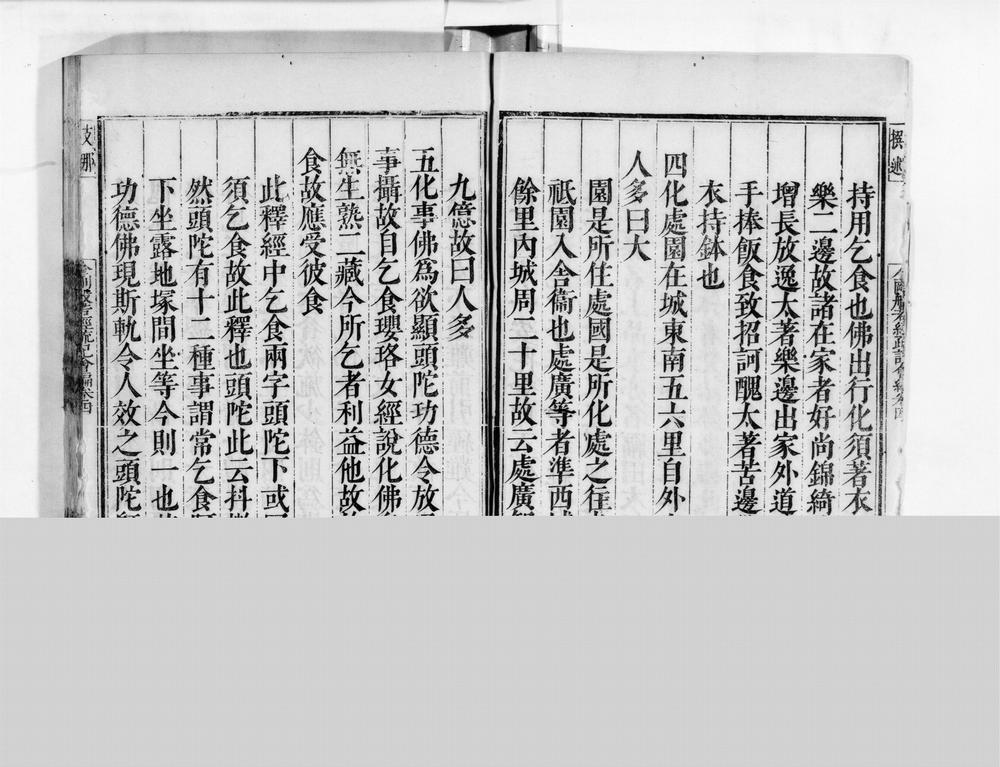 撰述
持用乞食也佛出行化須著衣
樂二邊故諸在家者好尚錦綺
增長放逸太著樂邊出家外道
手捧飯食致招訶醜太著苦邊
衣持鉢也
四化處園在城東南五六里自外
人多曰大
園是所住處國是所化處之往
祇園入舍衞也處廣等者準西
餘里內城周二十里故云處廣
九億故曰人多
五化事佛爲欲顯頭陀功德令放
事攝故自乞食瓔珞女經說化佛
無生熟二藏今所乞者利益他故
食故應受彼食
此釋經中乞食兩字頭陀下或
須乞食故此釋也頭陀此云抖
然頭陀有十二種事謂常乞食
下坐露地塚間坐等今則一也
功德佛現斯軌令人效之頭陀
支那